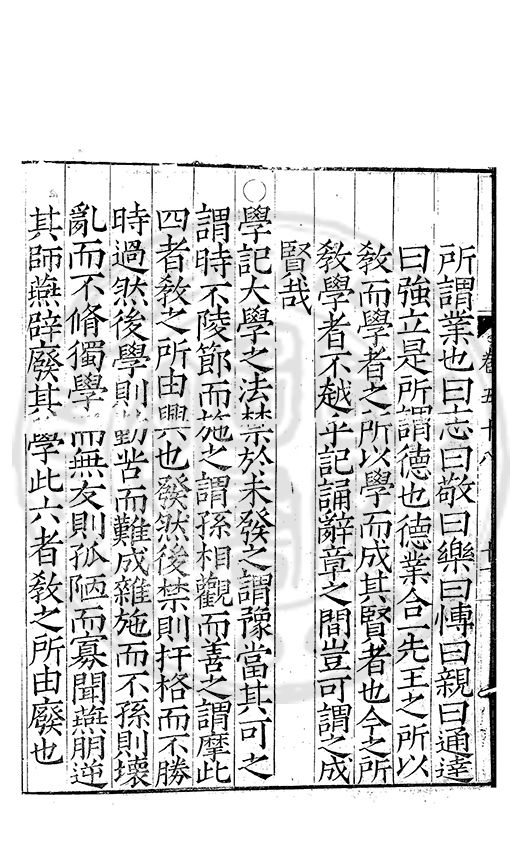 卷五十八
所謂業也曰志曰敬曰樂曰博曰親曰通達
曰強立是所謂德也德業合一先王之所以
教而學者之所以學而成其賢者也今之所
教學者不越乎記誦辭章之間豈可謂之成
賢哉
○學記大學之法禁於未發之謂豫當其可之
謂時不陵節而施之謂孫相觀而善之謂摩此
四者教之所由興也發然後禁則扞格而不勝
時過然後學則勤苦而難成雜施而不孫則壞
亂而不脩獨學而無友則孤陋而寡聞燕朋逆
其師燕辟廢其學此六者教之所由廢也